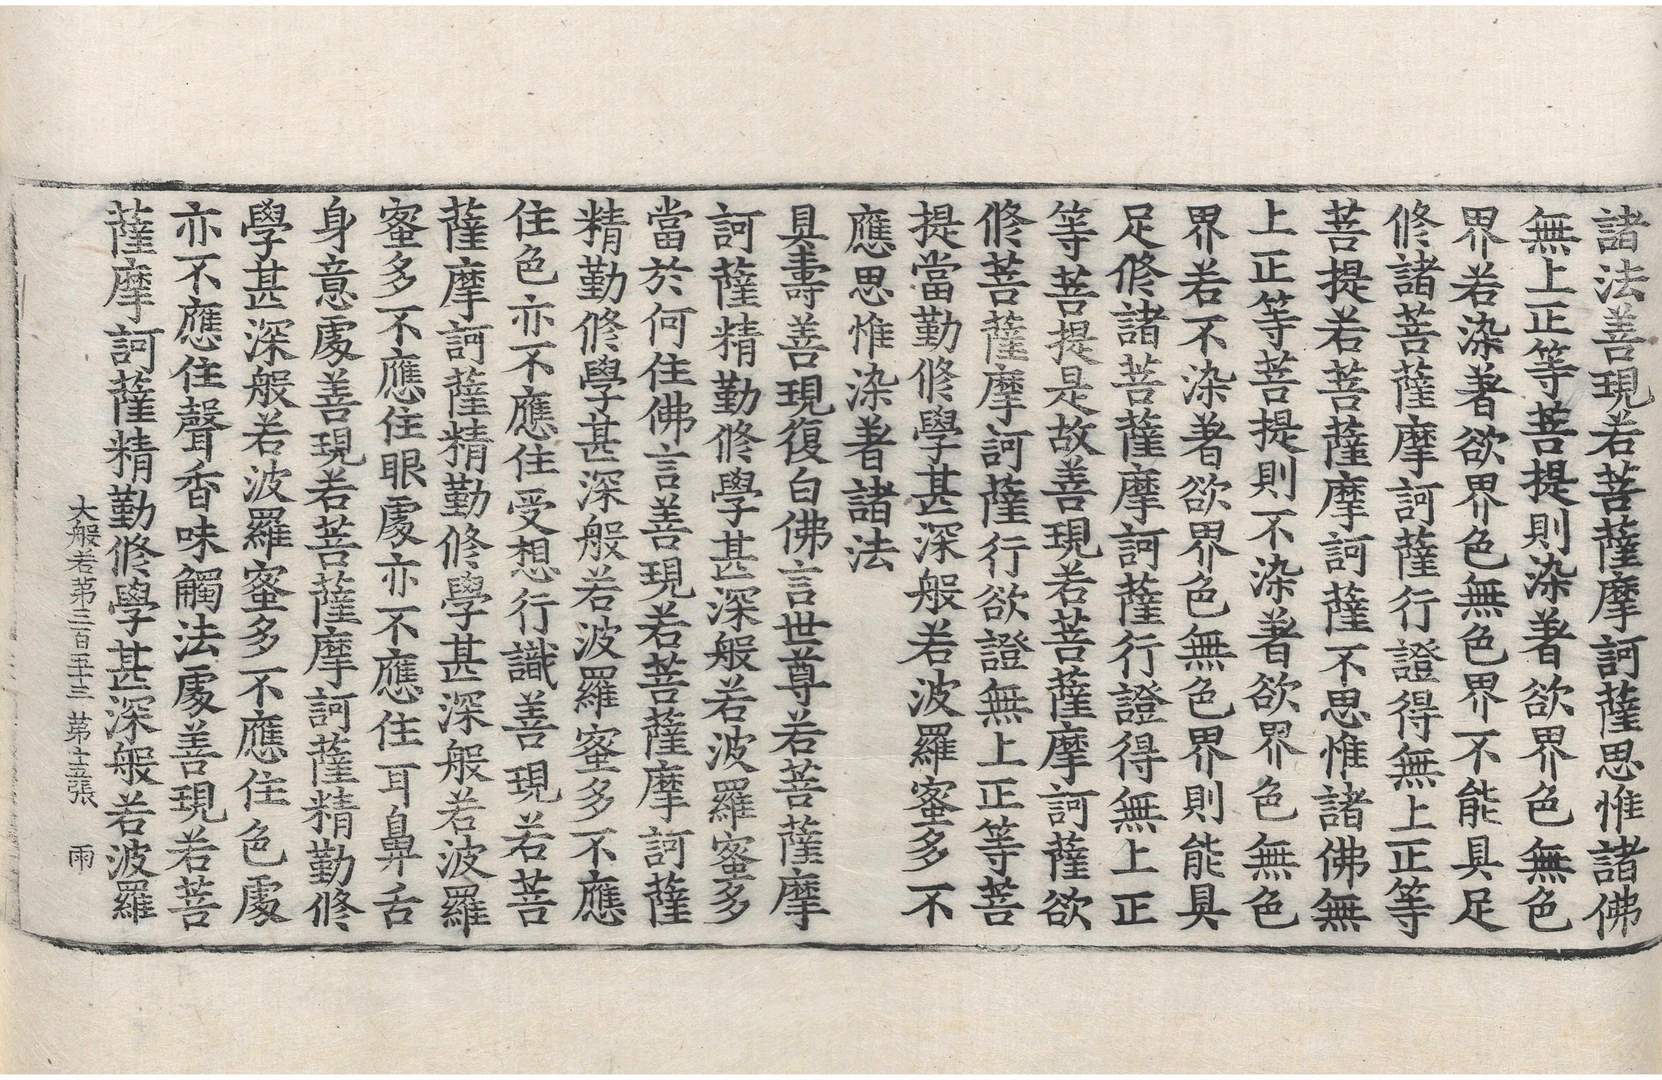 諸法善現若菩薩摩訶薩思惟諸佛
無上正等菩提則染著欲界色無色
界若染著欲界色無色界不能具足
修諸菩薩摩訶薩行證得無上正等
菩提若菩薩摩訶薩不思惟諸佛無
上正等菩提則不染著欲界色無色
界若不染著欲界色無色界則能具
足修諸菩薩摩訶薩行證得無上正
等菩提是故善現若菩薩摩訶薩欲
修菩薩摩訶薩行欲證無上正等菩
提當勤修學甚深般若波羅蜜多不
應思惟染著諸法
具壽善現復白佛言世尊若菩薩摩
訶薩精勤修學甚深般若波羅蜜多
當於何住佛言善現若菩薩摩訶薩
精勤修學甚深般若波羅蜜多不應
住色亦不應住受想行識善現若菩
薩摩訶薩精勤修學甚深般若波羅
蜜多不應住眼處亦不應住耳鼻舌
身意處善現若菩薩摩訶薩精勤修
學甚深般若波羅蜜多不應住色處
亦不應住聲香味觸法處善現若菩
薩摩訶薩精勤修學甚深般若波羅
大般若第三百五十三 第十五張 雨